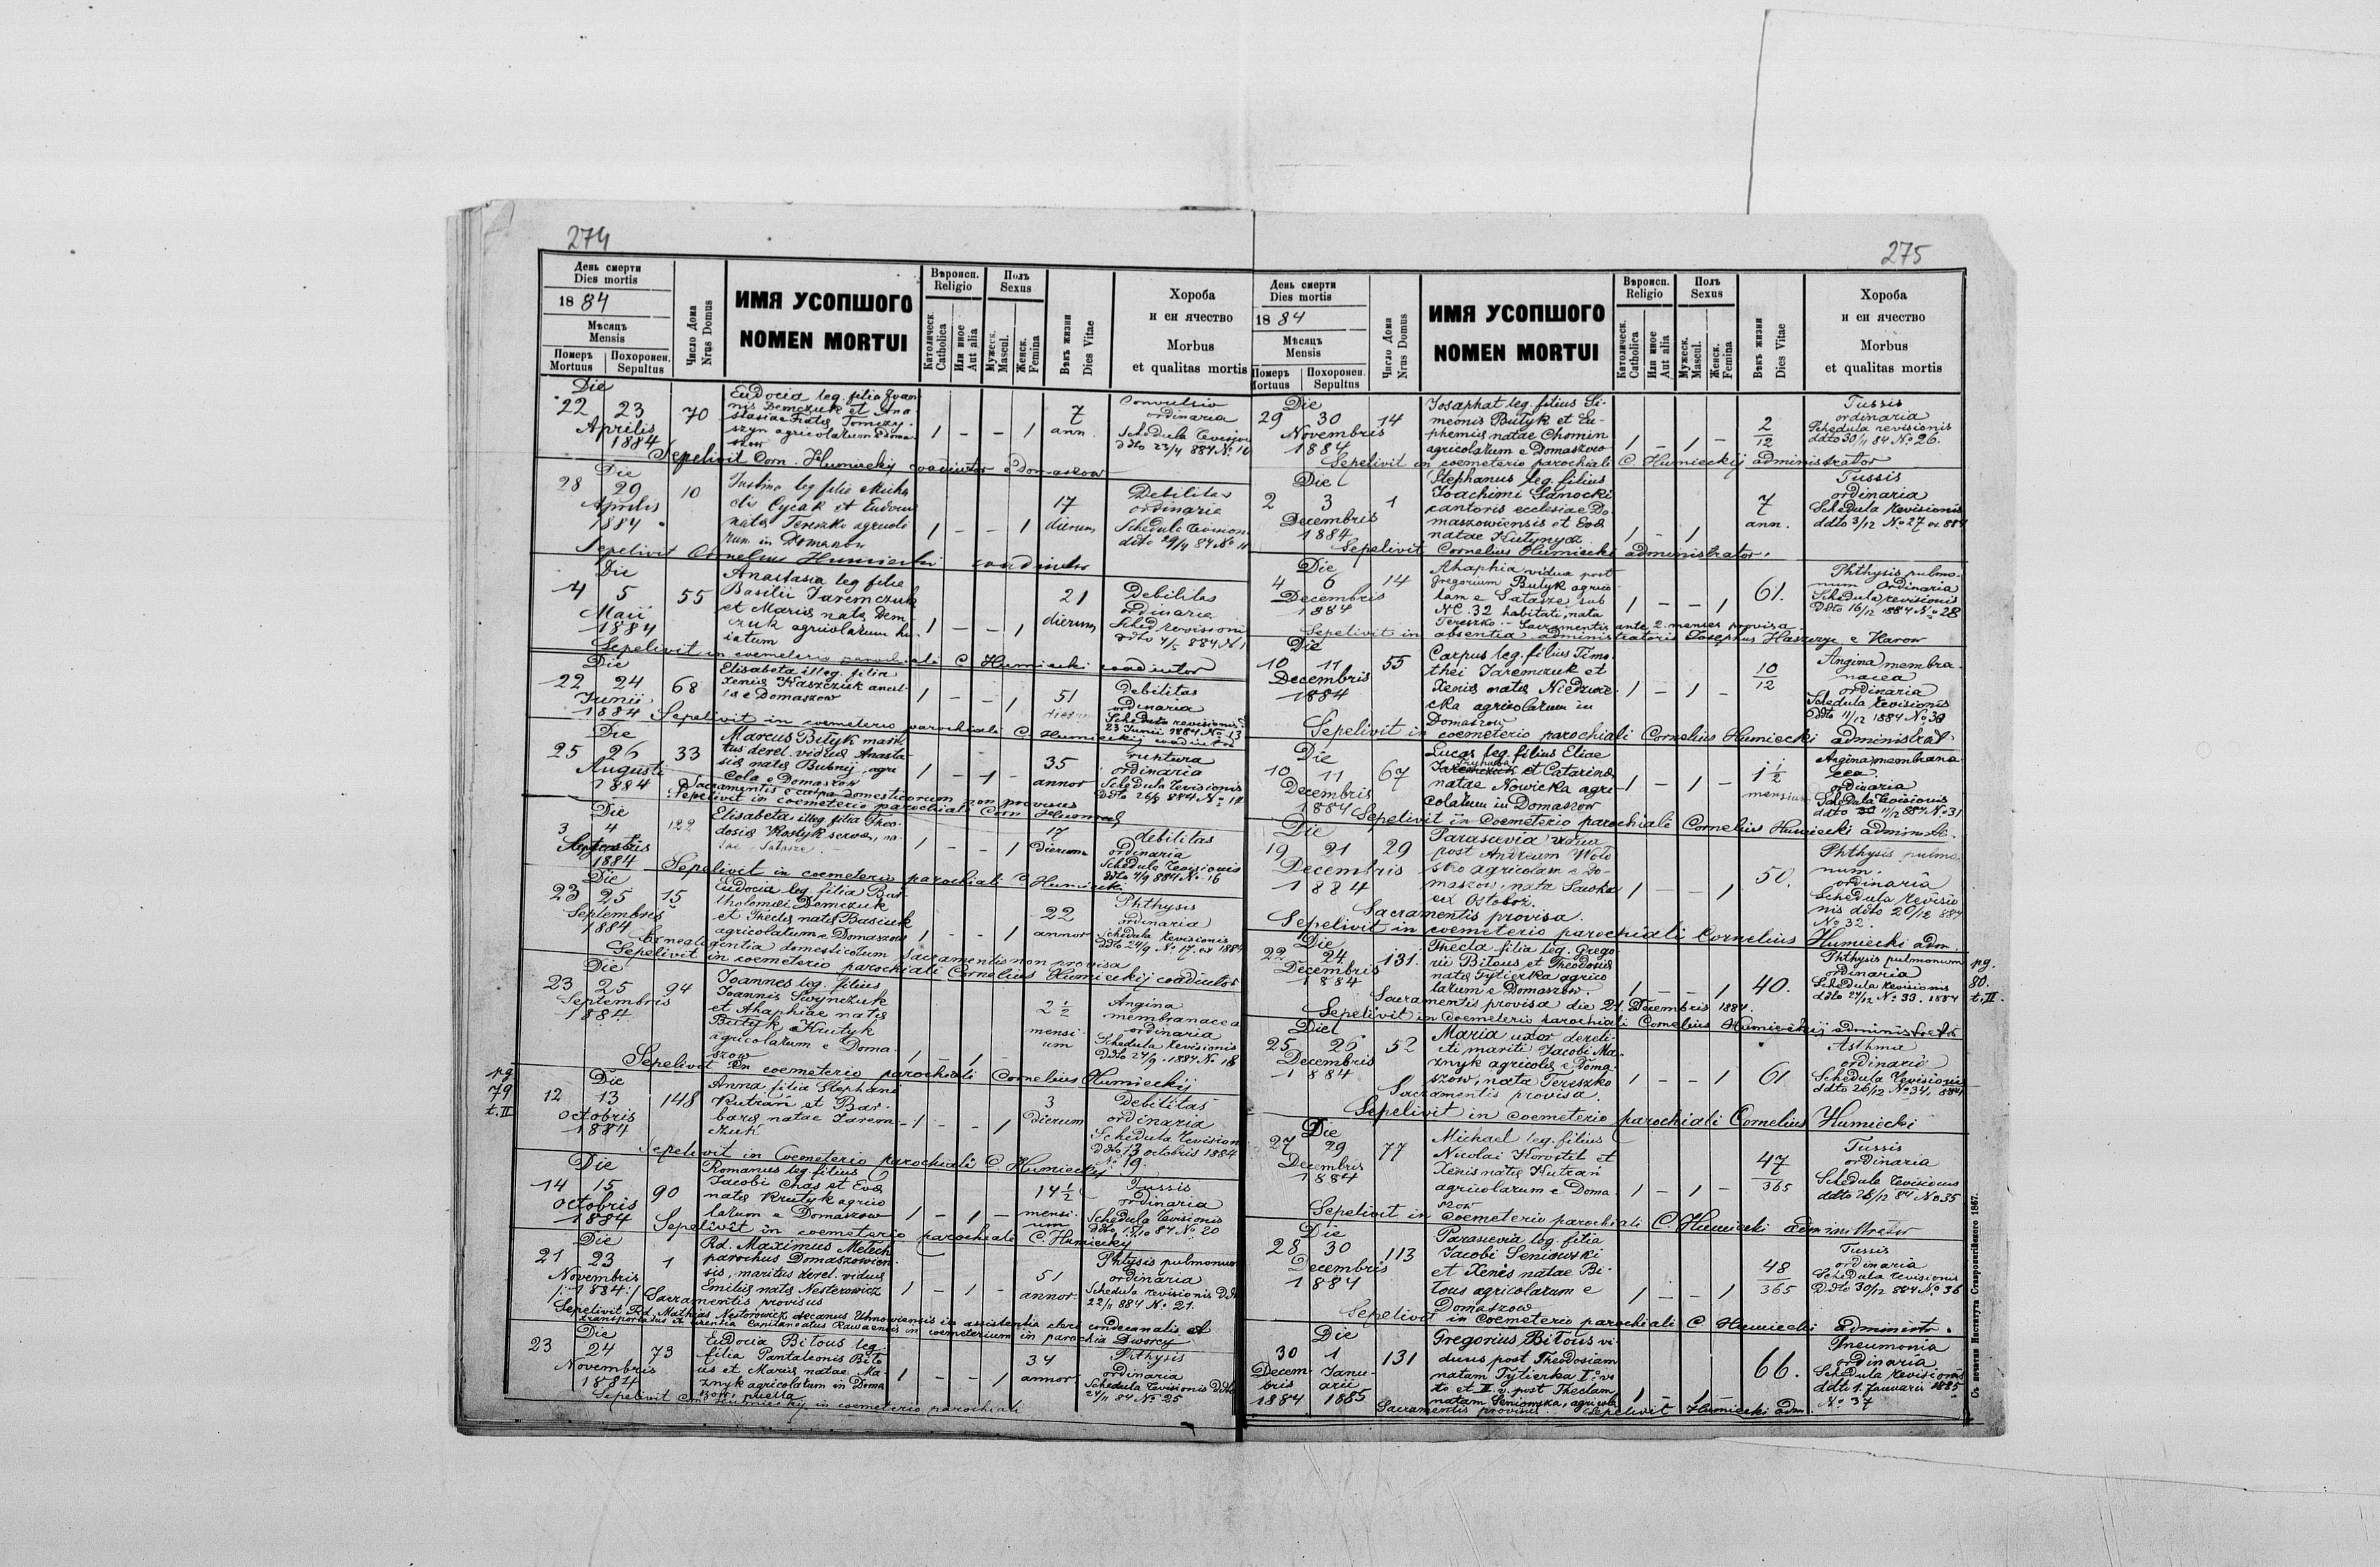 274
День смерти
Dies mortis
1884
Мѣсяцъ
Mensis
Померъ
Mortuus
Похоронен.
Sepultus
Число Дома
Nrus Domus
ИМЯ УСОПШОГО
NOMEN MORTUI
Вѣроисп.
Religio
Католическ.
Catholica
Или иное
Aut alia
Полъ
Sexus
Мужеск.
Mascul.
Женск.
Femina
Вѣкъ жизни
Dies Vitae
Хороба
и еи ячество
Morbus
et qualitas mortis
Die
22 23
Aprilis
1884
70
Eudocia leg. filia Joan
nis Demczuk et Ana
stasiae natę
szyn agricolarum e Doma
szow
1 - - 1
7
ann.
Convulsio
ordinaria
Schedula revision
ddto 23/4 884 No 10
Sepelivit Corn. Humieckij coadiutor e Domaszow
Die
28 29
Aprilis
1884
10
Justina leg filia Micha
elis Cycak et Eudociae
natę Tereszko agricola
rum in Domaszow
1 - - 1
17
dierum
Debilitas
ordinaria
Schedula revision
ddto 29/4 84 No 11
Sepelivit Cornelius Humiecki coadiutor
Die
4 5
Maii
1884
55
Anastasia leg filia
Basilii Jaremczuk
et Marię nata Dem
czuk agricolarum hu
iatum
1 - - 1
21
dierum
Debilitas
ordinaria
Sched revisioni
ddto 4/5 884 N
Sepelivit in coemeterio parochiali C Humiecki coadiutor
Die
22 24
Junii
1884
68
Elisabeta illeg. filia
Xenię Kaszczuk ancil
lę e Domaszow
1 - - 1
51
dierum
Debilitas
ordinaria
Schedula revisionis
23 Junii 1884 No 13
Sepelivit in coemeterio parochiali C. Humieckij coadiutor
Die
25 26
Augusti
1884
33
Marcus Bityk mari
tus derel. viduę Anasta
się natę Bubnij, agri
cola e Domaszow
1 - 1 -
35
annor
ordinaria
Schedula revisionis
ddto 26/8 884 No 14
Sacramentis e culpa domesticorum non provisus
Sepelivit in coemeterio parochiali Corn Humiecki
Die
3 4
Septembris
1884
122
Elisabeta illeg filia Theo
dosię Kostyk serva, na
1 - - 1
17
dierum
debilitas
ordinaria
Schedula revisionis
ddto 4/9 884 No 16
Sepelivit in coemeterio parochiali C Humiecki
Die
23 25
Septembris
1884
15
Eudocia leg. filia Bar
tholomęi Demczuk
et Theclę natę Basiuk
agricolarum e Domaszow
1 - - 1
22
annor
Phthysis
ordinaria
Schedula revisionis
ddto 24/9 No 17. ex 1884
Ex negligentia domesticorum sacramentis non provisa
Sepelivit in coemeterio parochiali Cornelius Humieckij coadiutor
Die
23 25
Septembris
1884
94
Joannes leg. filius
Joannis Swynczuk
et Ahaphiae natę
Butyk Krutyk
agricolarum e Doma
szow
1 - 1 -
2 1/2
mensi
um
Angina
membranacea
ordinaria
Schedula revisionis
ddto 24/9. 1884 No 18
Sepelivit in coemeterio parochiali Cornelius Humieckij
pg
79
t. II
Die
12 13
octobris
1884
148
Anna filia Stephani
Kutran et Bar
barę natae Jarem
czuk
1 - - 1
3
dierum
Debilitas
ordinaria
Schedula revision
ddto 13 octobris 1884
No 19.
Sepelivit in Coemeterio parochiali C Humieckij
Die
14 15
octobris
1884
90
Romanus leg. filius
Jacobi Chas et Evę
natę Krutyk agrico
larum e Domaszow
1 - 1 -
14 1/2
mensi
um
Tussis
ordinaria
Schedula revisionis
ddto 15/10 84 No 20
Sepelivit in coemeterio parochiali C. Humiecky
Die
21 23
Novembris
/: 1884 :/
1
Rd. Maximus Metech
parochus Domaszowien
sis, maritus derel. viduę
Emilię natę Nesterowicz
1 - 1 -
51
annor.
Phtysis pulmonum
ordinaria
Schedula revisionis Ddto
22/11 884 No 21.
Sacramentis provisus
Sepelivit Rd. Mathias Nestorowicz decanus Uhnowiensis in assistentia cleri condecanalis et
transportatus ex licentia Capitaneatus Rawaensis in coemeterium in parochia Dworcy
Die
23 24
Novembris
1884
73
Eudocia Bitous leg.
filia Pantaleonis Bito
us et Marię natae Ma
znyk agricolarum in Doma
szow puella
1 - - 1
34
annor
Phthysis
ordinaria
Schedula revisionis Ddto
24/11 84 No 25
Sepelivit Corn Humieckij in coemeterio parochiali
275
День смерти
Dies mortis
1884
Мѣсяцъ
Mensis
Померъ
Mortuus
Похоронен.
Sepultus
Число Дома
Nrus Domus
ИМЯ УСОПШОГО
NOMEN MORTUI
Вѣроисп.
Religio
Католическ.
Catholica
Или иное
Aut alia
Полъ
Sexus
Мужеск.
Mascul.
Женск.
Femina
Вѣкъ жизни
Dies Vitae
Хороба
и еи ячество
Morbus
et qualitas mortis
Die
29 30
Novembris
1884
14
Josaphat leg. filius Si
meonis Butyk et Eu
phemię natae Chomin
agricolarum e Domaszow
1 - 1 -
2/12
Tussis
ordinaria
Schedula revisionis
ddto 30/11 84 No 26.
Sepelivit in coemeterio parochiali C. Humieckij administrator
Die
2 3
Decembris
1884
1
Stephanus leg. filius
Joachimi Sanocki
cantoris ecclesiae Do
maszowiensis et Evę
natae Kutynycz
1 - 1
7
ann.
Tussis
ordinaria
Schedula revisionis
ddto 3/12 No 27 ex 884
Sepelivit Cornelius Humiecki administrator.
Die
4 6
Decembris
1884
14
Ahaphia vidua post
Gregorium Butyk agrico
lam e Satasze, sub
NC. 32 habitati, nata
Tereszko - Sacramentis ante 2. menses provisa.
1 - - 1
61.
Phthysis pulmo
num ordinaria
Schedula revisionis
Ddto 16/12 1884 No 28
Sepelivit in absentia administratoris Josephus Haszczyc e Karow
Die
10 11
Decembris
1884
55
Carpus leg. filius Timo
thei Jaremczuk et
Xenię natę Niedzwe
cka agricolarum in
Domaszow
1 - 1 -
10/12
Angina membra
nacea
ordinaria
Schedula revisionis
Ddto 11/12 1884 No 30
Sepelivit in coemeterio parochiali Cornelius Humiecki administrat
Die
10 11
Decembris
1884
67
Lucas leg. filius Eliae
Jaremczuk et Catarinę
natae Nowicka agri
colarum in Domaszow
1 - 1 -
1 1/2
mensium
Angina membrana
cea.
ordinaria
Schedula revisionis
ddto 11/12 884 No 31
Sepelivit in Coemeterio parochiali Cornelius Humiecki administr.
Die
19 21
Decembris
1884
29
Parascevia vidua
post Andream Woto
szko agricolam e Do
maszow, nata Sawka
ex Ostobož.
1 - - 1
50.
Phthysis pulmo
num.
ordinaria
Schedula revisio
nis ddto 20/12 884
No 32.
Sacramentis provisa.
Sepelivit in coemeterio parochiali Cornelius Humiecki adm.
Die
22 24
Decembris
1884
131.
Thecla filia leg. Grego
rii Bitous et Theodosię
natę Tytierka agrico
larum e Domaszow.
1 - - 1
40.
Phthysis pulmonum
ordinaria
Schedula revisionis
ddto 24/12 No 33. 1884
pg.
80.
t. II.
Sacramentis provisa die 21. Decembris 1884.
Sepelivit in Coemeterio parochiali Cornelius Humieckij administrator
Die
25 26
Decembris
1884
52
Maria uxor dereli
cti mariti Jacobi Ma
znyk agricolę e Doma
szow, nata Tereszko
1 - - 1
61
Asthma
ordinario
Schedula revisionis
ddto 26/12 No 34. 884
Sacramentis provisa.
Sepelivit in coemeterio parochiali Cornelius Humiecki
Die
27 29
Decembris
1884
77
Michael leg. filius
Nicolai Korostil et
Xenię natę Kutran
agricolarum e Doma
szow
1 - 1 -
47/365
Tussis
ordinaria
Schedula revisionis
ddto 28/12 84 No 35
Sepelivit in Coemeterio parochiali C. Humiecki administrator
Die
28 30
Decembris
1884
113
Parascevia leg. filia
Jacobi Seniowski
et Xenię natae Bi
tous agricolarum e
Domaszow
1 - - 1
48/365
Tussis
ordinaria
Schedula revisionis
Ddto 30/12 884 No 36
Sepelivit in Coemeterio parochiali C Humiecki administr.
Die
30 1
Decem- Janu-
bris arii
1884 1885
131
Gregorius Bitous vi
duus post Theodosiam
natam Tytierka I. vo
to et II. v. post Theclam
natam Seniowska, agricola
1 - 1 -
66.
Pneumonia
ordinaria
Schedula revisionis
ddto 1. Januarii 1885
No 37
Sacramentis provisus. Sepelivit Humiecki adm
Съ печатни Института Ставропигійского 1867.